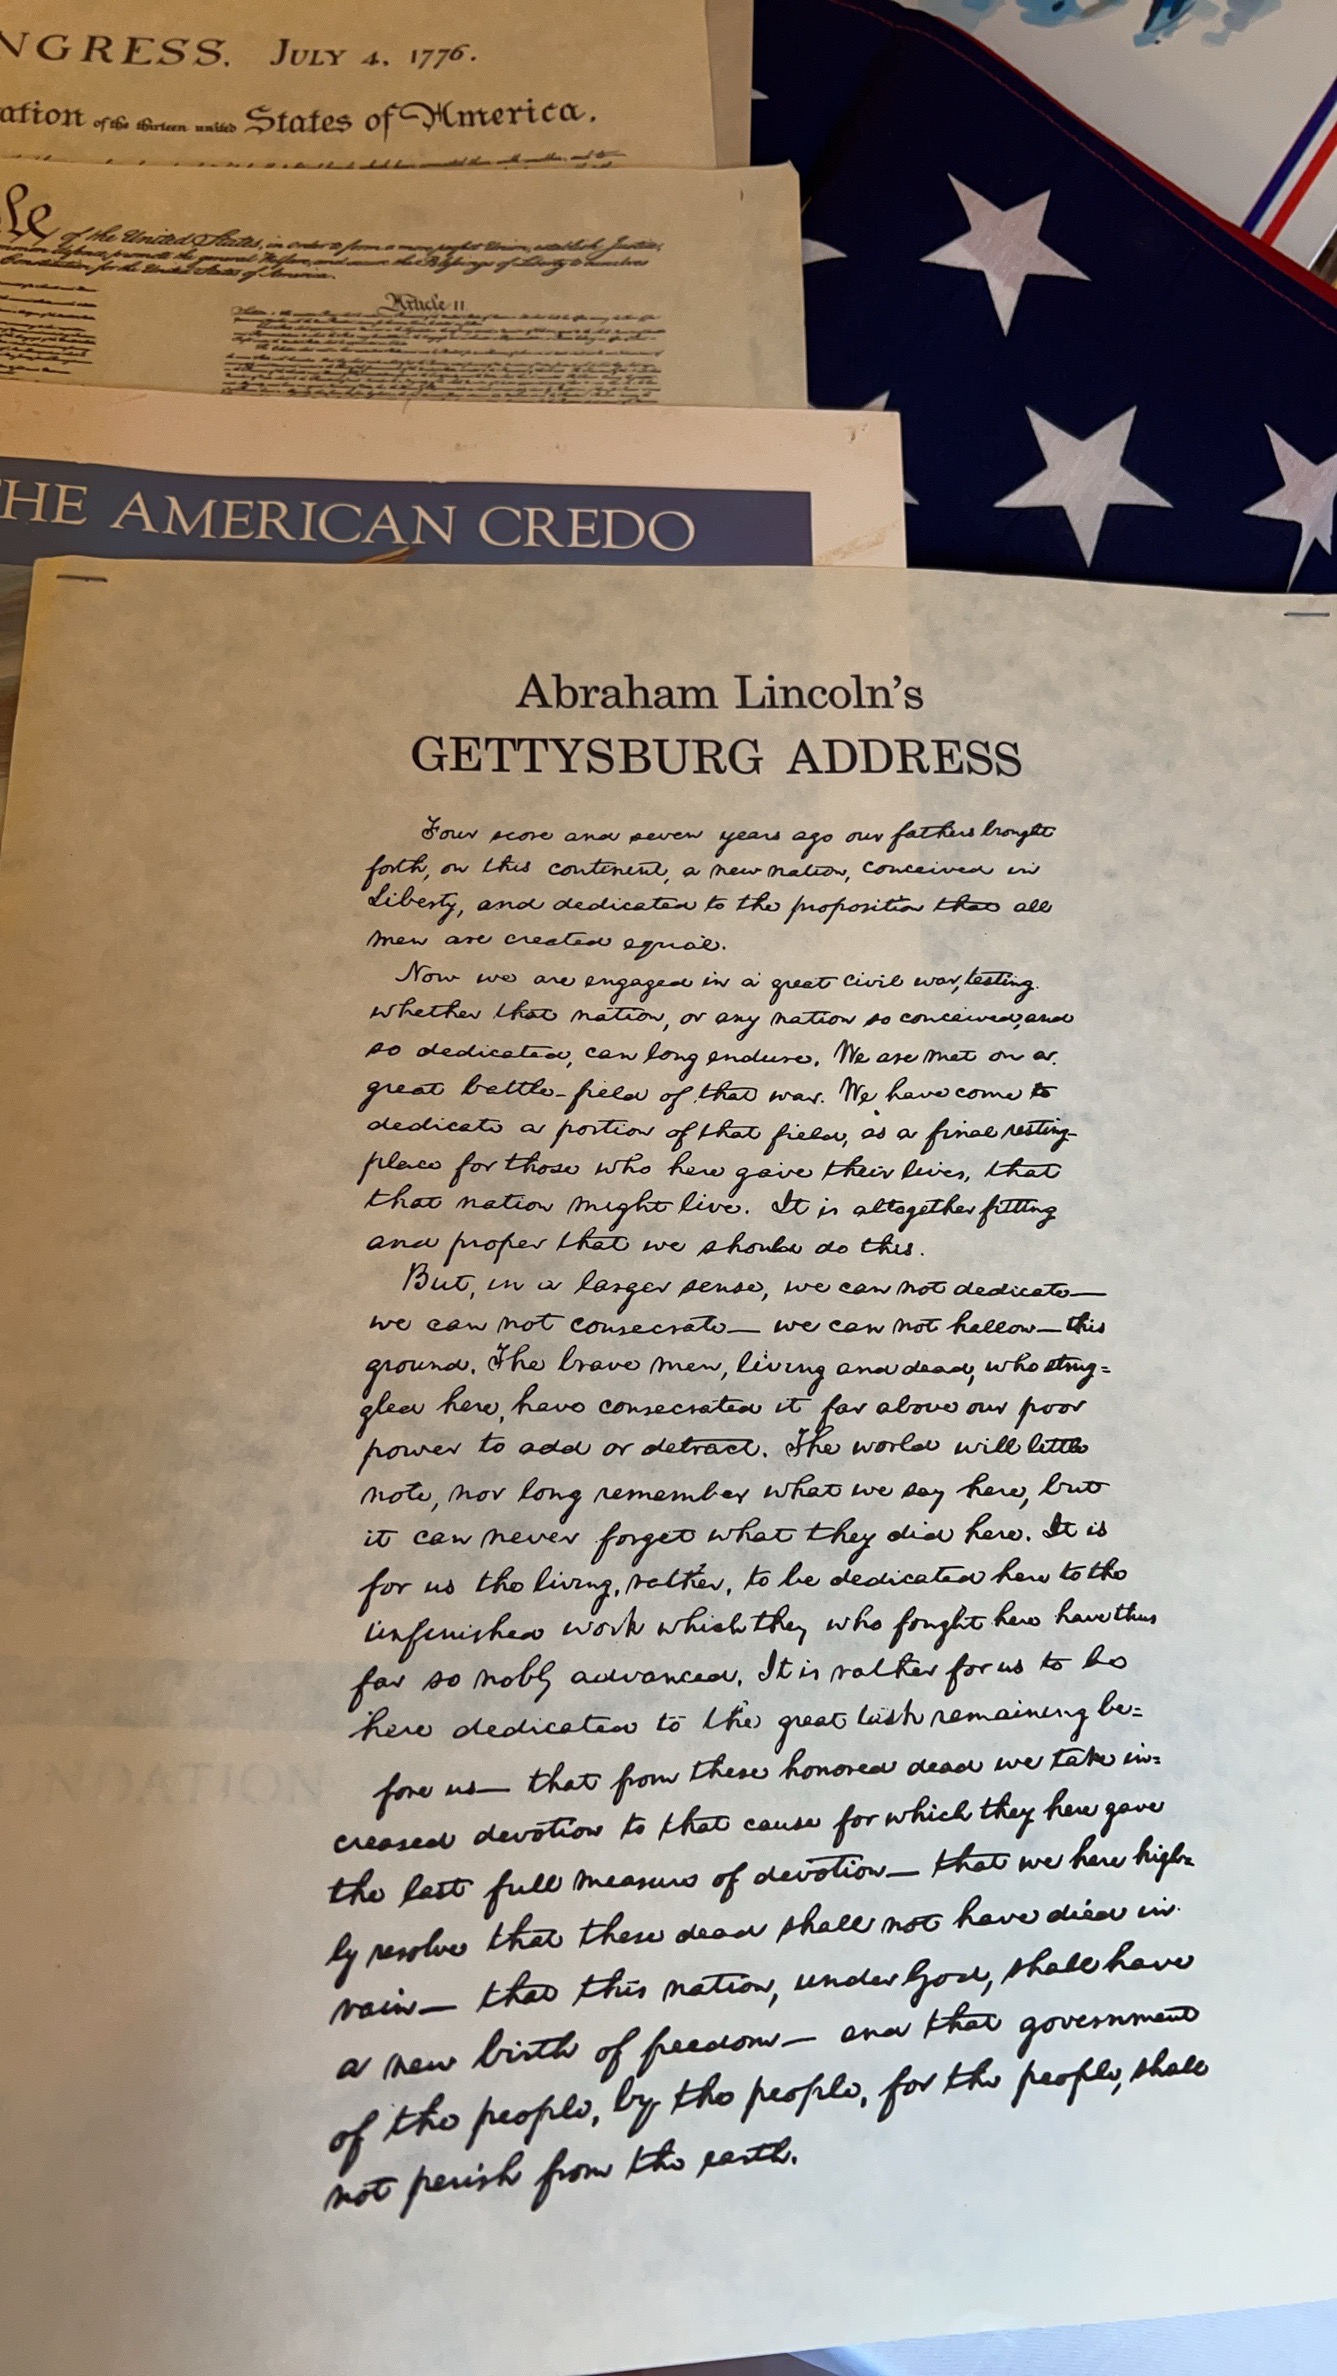 NGRESS. JULY 4, 1776.
ation of the thirteen united States of America.
of the United States, in order to form a more perfect Union, establish Justice,
common defence, promote the general Welfare, and secure the Blessings of Liberty to ourselves
Constitution for the United States of America.
Article II
THE AMERICAN CREDO
Abraham Lincoln's
GETTYSBURG ADDRESS
Four score and seven years ago our fathers brought
forth, on this continent, a new nation, conceived in
Liberty, and dedicated to the proposition that all
men are created equal.
Now we are engaged in a great civil war, testing
whether that nation, or any nation so conceived, and
so dedicated, can long endure. We are met on a
great battle-field of that war. We have come to
dedicate a portion of that field, as a final resting-
place for those who here gave their lives, that
that nation might live. It is altogether fitting
and proper that we should do this.
But, in a larger sense, we can not dedicate—
we can not consecrate— we can not hallow— this
ground. The brave men, living and dead, who strug=
gled here, have consecrated it far above our poor
power to add or detract. The world will little
note, nor long remember what we say here, but
it can never forget what they did here. It is
for us the living, rather, to be dedicated here to the
unfinished work which they who fought here have thus
far so nobly advanced. It is rather for us to be
here dedicated to the great task remaining be=
fore us— that from these honored dead we take in=
creased devotion to that cause for which they here gave
the last full measure of devotion— that we here high=
ly resolve that these dead shall not have died in
vain— that this nation, under God, shall have
a new birth of freedom— and that government
of the people, by the people, for the people, shall
not perish from the earth.